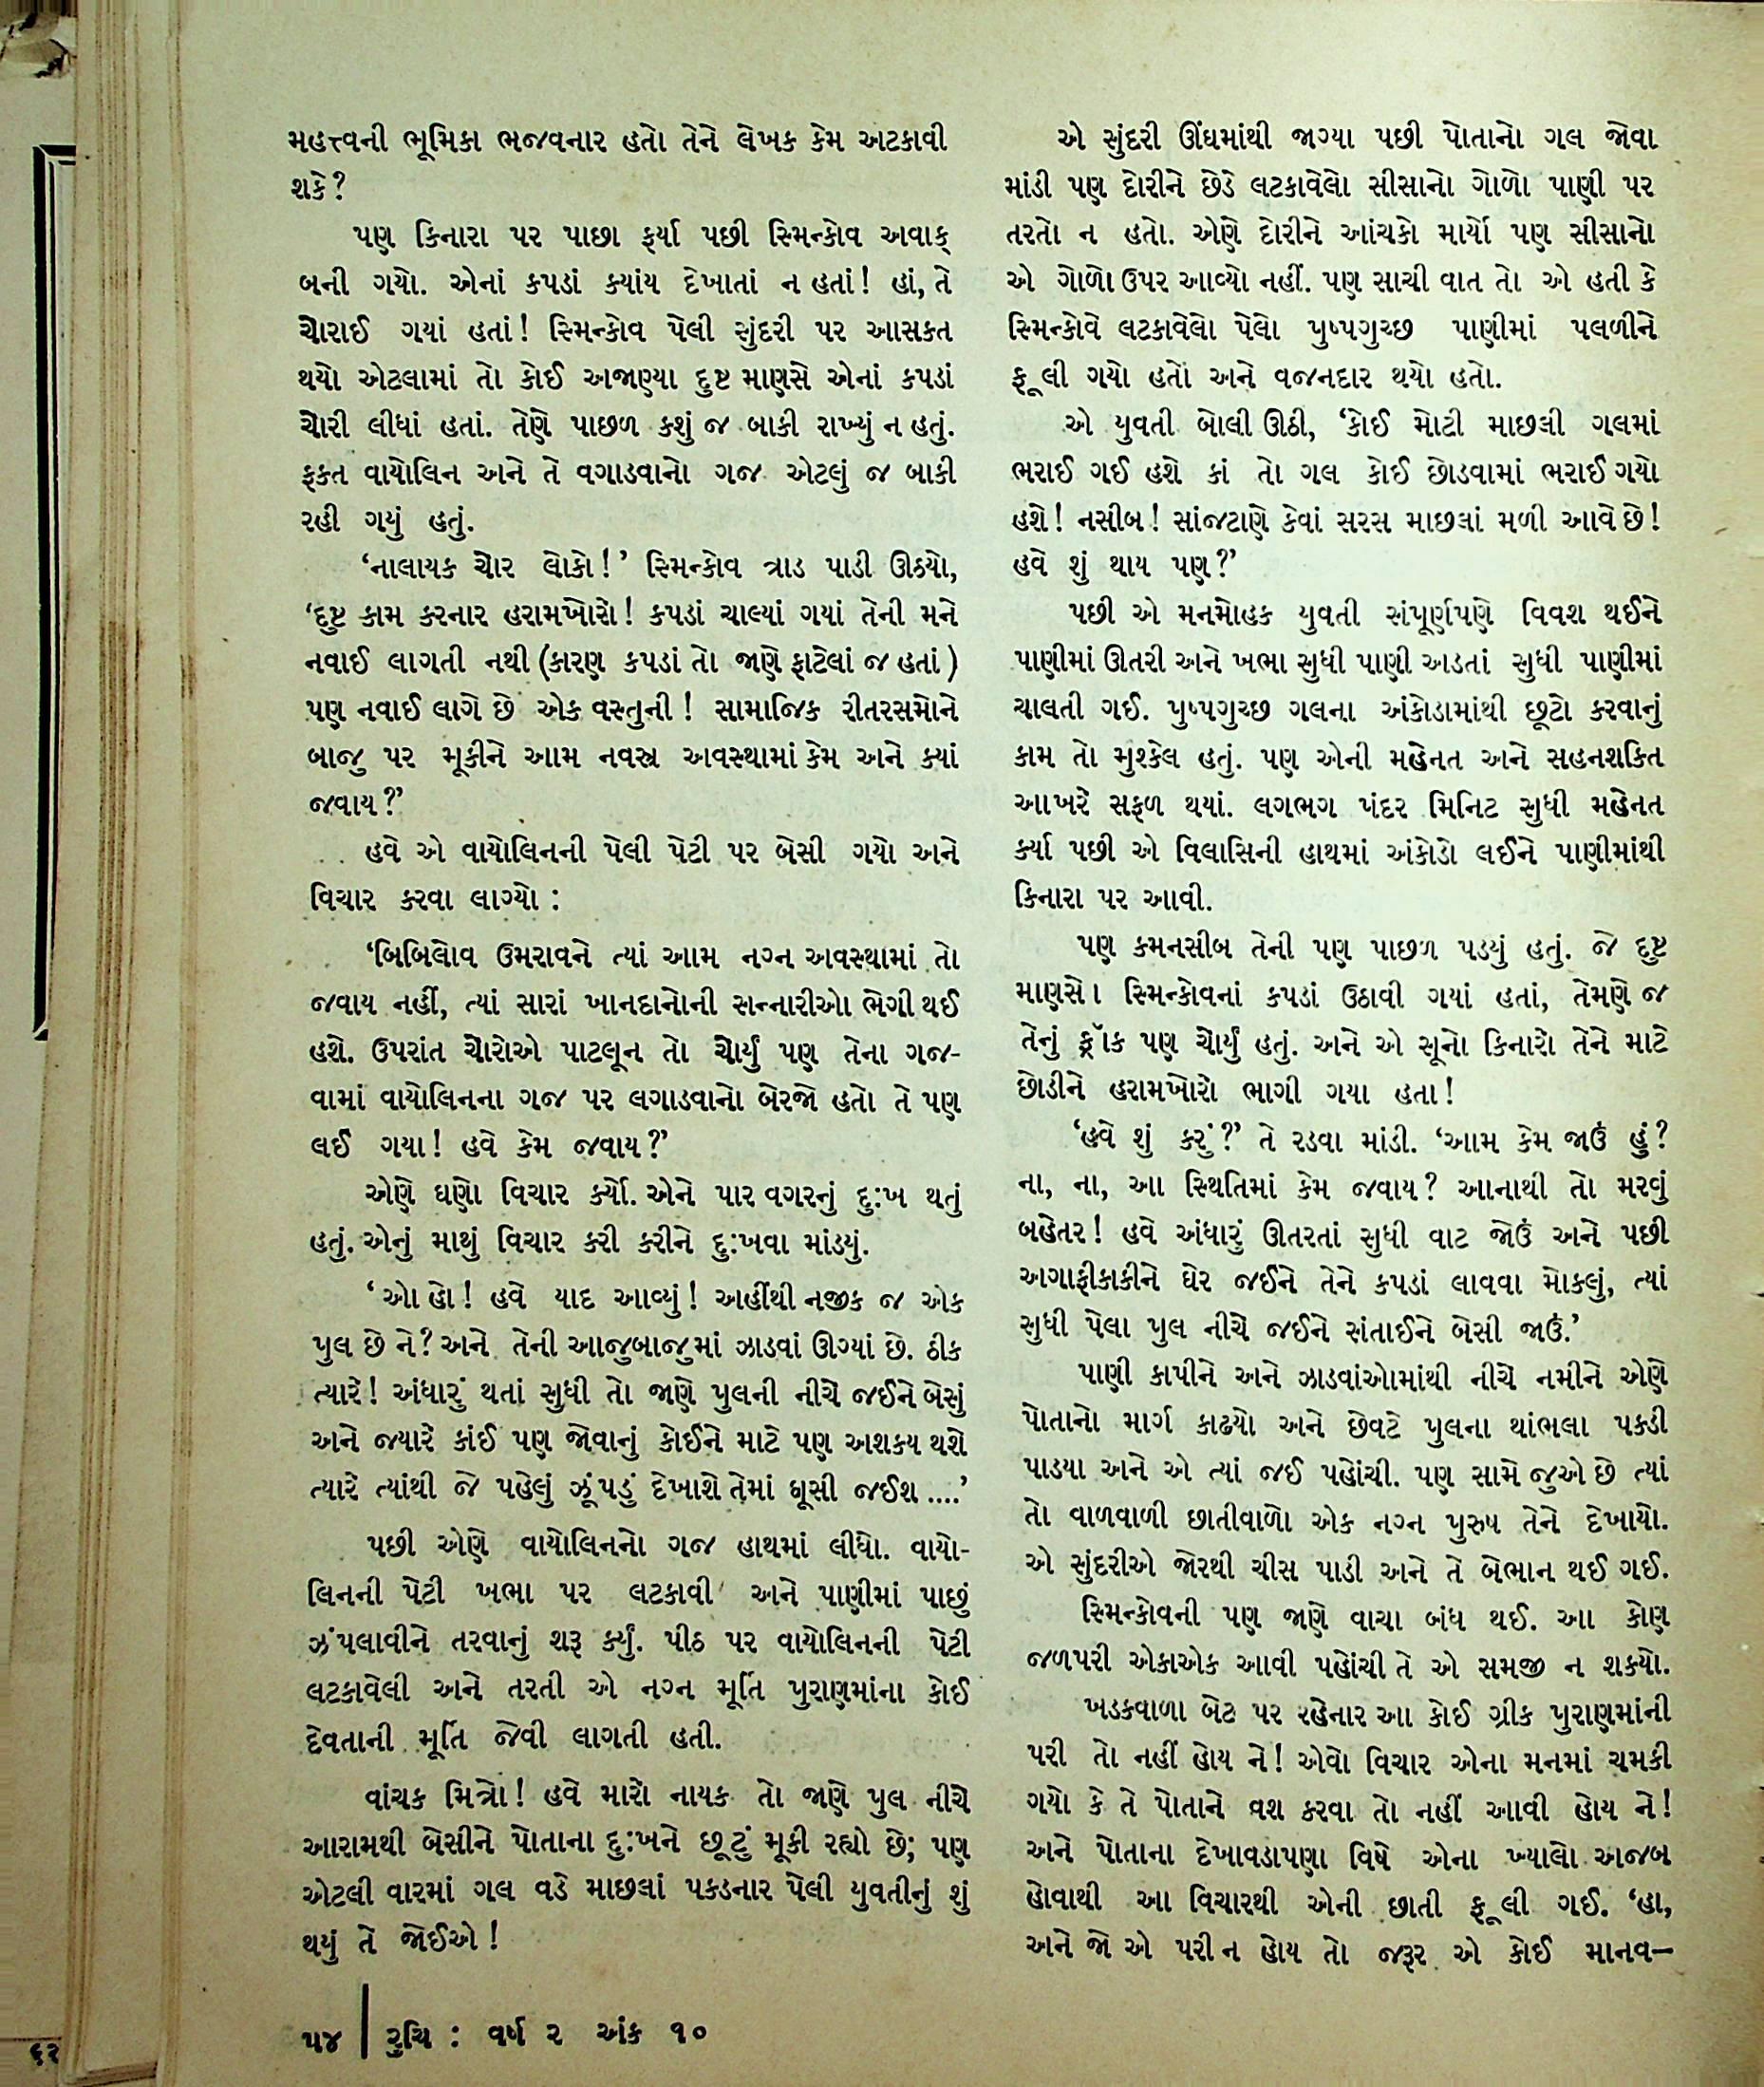 મહત્ત્વની ભૂમિકા ભજવનાર હતો તેને લેખક કેમ અટકાવી
શકે?
પણ કિનારા પર પાછા ફર્યા પછી સ્મિન્કોવ અવાક્
બની ગયો. એનાં કપડાં ક્યાંય દેખાતાં ન હતાં! હાં, તે
ચોરાઈ ગયાં હતાં! સ્મિન્કોવ પેલી સુંદરી પર આસક્ત
થયો એટલામાં તો કોઈ અજાણ્યા દુષ્ટ માણસે એનાં કપડાં
ચોરી લીધાં હતાં. તેણે પાછળ કશું જ બાકી રાખ્યું ન હતું.
ફક્ત વાયોલિન અને તે વગાડવાનો ગજ એટલું જ બાકી
રહી ગયું હતું.
‘નાલાયક ચોર લોકો!’ સ્મિન્કોવ ત્રાડ પાડી ઊઠયો,
‘દુષ્ટ કામ કરનાર હરામખોરો! કપડાં ચાલ્યાં ગયાં તેની મને
નવાઈ લાગતી નથી (કારણ કપડાં તો જાણે ફાટેલાં જ હતાં)
પણ નવાઈ લાગે છે એક વસ્તુની! સામાજિક રીતરસમોને
બાજુ પર મૂકીને આમ નવસ્ત્ર અવસ્થામાં કેમ અને ક્યાં
જવાય?’
હવે એ વાયોલિનની પેલી પેટી પર બેસી ગયો અને
વિચાર કરવા લાગ્યો :
‘બિબિલોવ ઉમરાવને ત્યાં આમ નગ્ન અવસ્થામાં તો
જવાય નહીં, ત્યાં સારાં ખાનદાનોની સન્નારીઓ ભેગી થઈ
હશે. ઉપરાંત ચોરોએ પાટલૂન તો ચોર્યું પણ તેના ગજ-
વામાં વાયોલિનના ગજ પર લગાડવાનો બેરજો હતો તે પણ
લઈ ગયા! હવે કેમ જવાય?’
એણે ઘણો વિચાર કર્યો. એને પાર વગરનું દુઃખ થતું
હતું. એનું માથું વિચાર કરી કરીને દુઃખવા માંડયું.
‘ઓ હો! હવે યાદ આવ્યું! અહીંથી નજીક જ એક
પુલ છે ને? અને તેની આજુબાજુમાં ઝાડવાં ઊગ્યાં છે. ઠીક
ત્યારે! અંધારું થતાં સુધી તો જાણે પુલની નીચે જઈને બેસું
અને જયારે કાંઈ પણ જોવાનું કોઈને માટે પણ અશકય થશે
ત્યારે ત્યાંથી જે પહેલું ઝૂંપડું દેખાશે તેમાં ઘૂસી જઈશ ....’
પછી એણે વાયોલિનનો ગજ હાથમાં લીધો. વાયો-
લિનની પેટી ખભા પર લટકાવી અને પાણીમાં પાછું
ઝંપલાવીને તરવાનું શરૂ કર્યું. પીઠ પર વાયોલિનની પેટી
લટકાવેલી અને તરતી એ નગ્ન મૂર્તિ પુરાણમાંના કોઈ
દેવતાની મૂર્તિ જેવી લાગતી હતી.
વાંચક મિત્રો! હવે મારો નાયક તો જાણે પુલ નીચે
આરામથી બેસીને પોતાના દુઃખને છૂટું મૂકી રહ્યો છે; પણ
એટલી વારમાં ગલ વડે માછલાં પકડનાર પેલી યુવતીનું શું
થયું તે જોઈએ!
એ સુંદરી ઊંઘમાંથી જાગ્યા પછી પોતાનો ગલ જોવા
માંડી પણ દોરીને છેડે લટકાવેલો સીસાનો ગોળો પાણી પર
તરતો ન હતો. એણે દોરીને આંચકો માર્યો પણ સીસાનો
એ ગોળો ઉપર આવ્યો નહીં. પણ સાચી વાત તો એ હતી કે
સ્મિન્કોવે લટકાવેલો પેલો પુષ્પગુચ્છ પાણીમાં પલળીને
ફૂલી ગયો હતો અને વજનદાર થયો હતો.
એ યુવતી બોલી ઊઠી, ‘કોઈ મોટી માછલી ગલમાં
ભરાઈ ગઈ હશે કાં તો ગલ કોઈ છોડવામાં ભરાઈ ગયો
હશે! નસીબ! સાંજટાણે કેવાં સરસ માછલાં મળી આવે છે!
હવે શું થાય પણ?’
પછી એ મનમોહક યુવતી સંપૂર્ણપણે વિવશ થઈને
પાણીમાં ઊતરી અને ખભા સુધી પાણી અડતાં સુધી પાણીમાં
ચાલતી ગઈ. પુષ્પગુચ્છ ગલના અંકોડામાંથી છૂટો કરવાનું
કામ તો મુશ્કેલ હતું. પણ એની મહેનત અને સહનશકિત
આખરે સફળ થયાં. લગભગ પંદર મિનિટ સુધી મહેનત
કર્યા પછી એ વિલાસિની હાથમાં અંકોડો લઈને પાણીમાંથી
કિનારા પર આવી.
પણ કમનસીબ તેની પણ પાછળ પડયું હતું. જે દુષ્ટ
માણસો સ્મિન્કોવનાં કપડાં ઉઠાવી ગયાં હતાં, તેમણે જ
તેનું ફ્રૉક પણ ચોર્યું હતું. અને એ સૂનો કિનારો તેને માટે
છોડીને હરામખોરો ભાગી ગયા હતા!
‘હવે શું કરું?’ તે રડવા માંડી. ‘આમ કેમ જાઉં હું?
ના, ના, આ સ્થિતિમાં કેમ જવાય? આનાથી તો મરવું
બહેતર! હવે અંધારું ઊતરતાં સુધી વાટ જોઉં અને પછી
અગાફીકાકીને ઘેર જઈને તેને કપડાં લાવવા મોકલું, ત્યાં
સુધી પેલા પુલ નીચે જઈને સંતાઈને બેસી જાઉં.’
પાણી કાપીને અને ઝાડવાંઓમાંથી નીચે નમીને એણે
પોતાનો માર્ગ કાઢયો અને છેવટે પુલના થાંભલા પકડી
પાડયા અને એ ત્યાં જઈ પહોંચી. પણ સામે જુએ છે ત્યાં
તો વાળવાળી છાતીવાળો એક નગ્ન પુરુષ તેને દેખાયો.
એ સુંદરીએ જોરથી ચીસ પાડી અને તે બેભાન થઈ ગઈ.
સ્મિન્કોવની પણ જાણે વાચા બંધ થઈ. આ કોણ
જળપરી એકાએક આવી પહોંચી તે એ સમજી ન શકયો.
ખડકવાળા બેટ પર રહેનાર આ કોઈ ગ્રીક પુરાણમાંની
પરી તો નહીં હોય ને! એવો વિચાર એના મનમાં ચમકી
ગયો કે તે પોતાને વશ કરવા તો નહીં આવી હોય ને!
અને પોતાના દેખાવડાપણા વિષે એના ખ્યાલો અજબ
હોવાથી આ વિચારથી એની છાતી ફૂલી ગઈ. ‘હા,
અને જો એ પરી ન હોય તો જરૂર એ કોઈ માનવ–
૫૪ | રુચિ : વર્ષ ૨ અંક ૧૦
૬૨